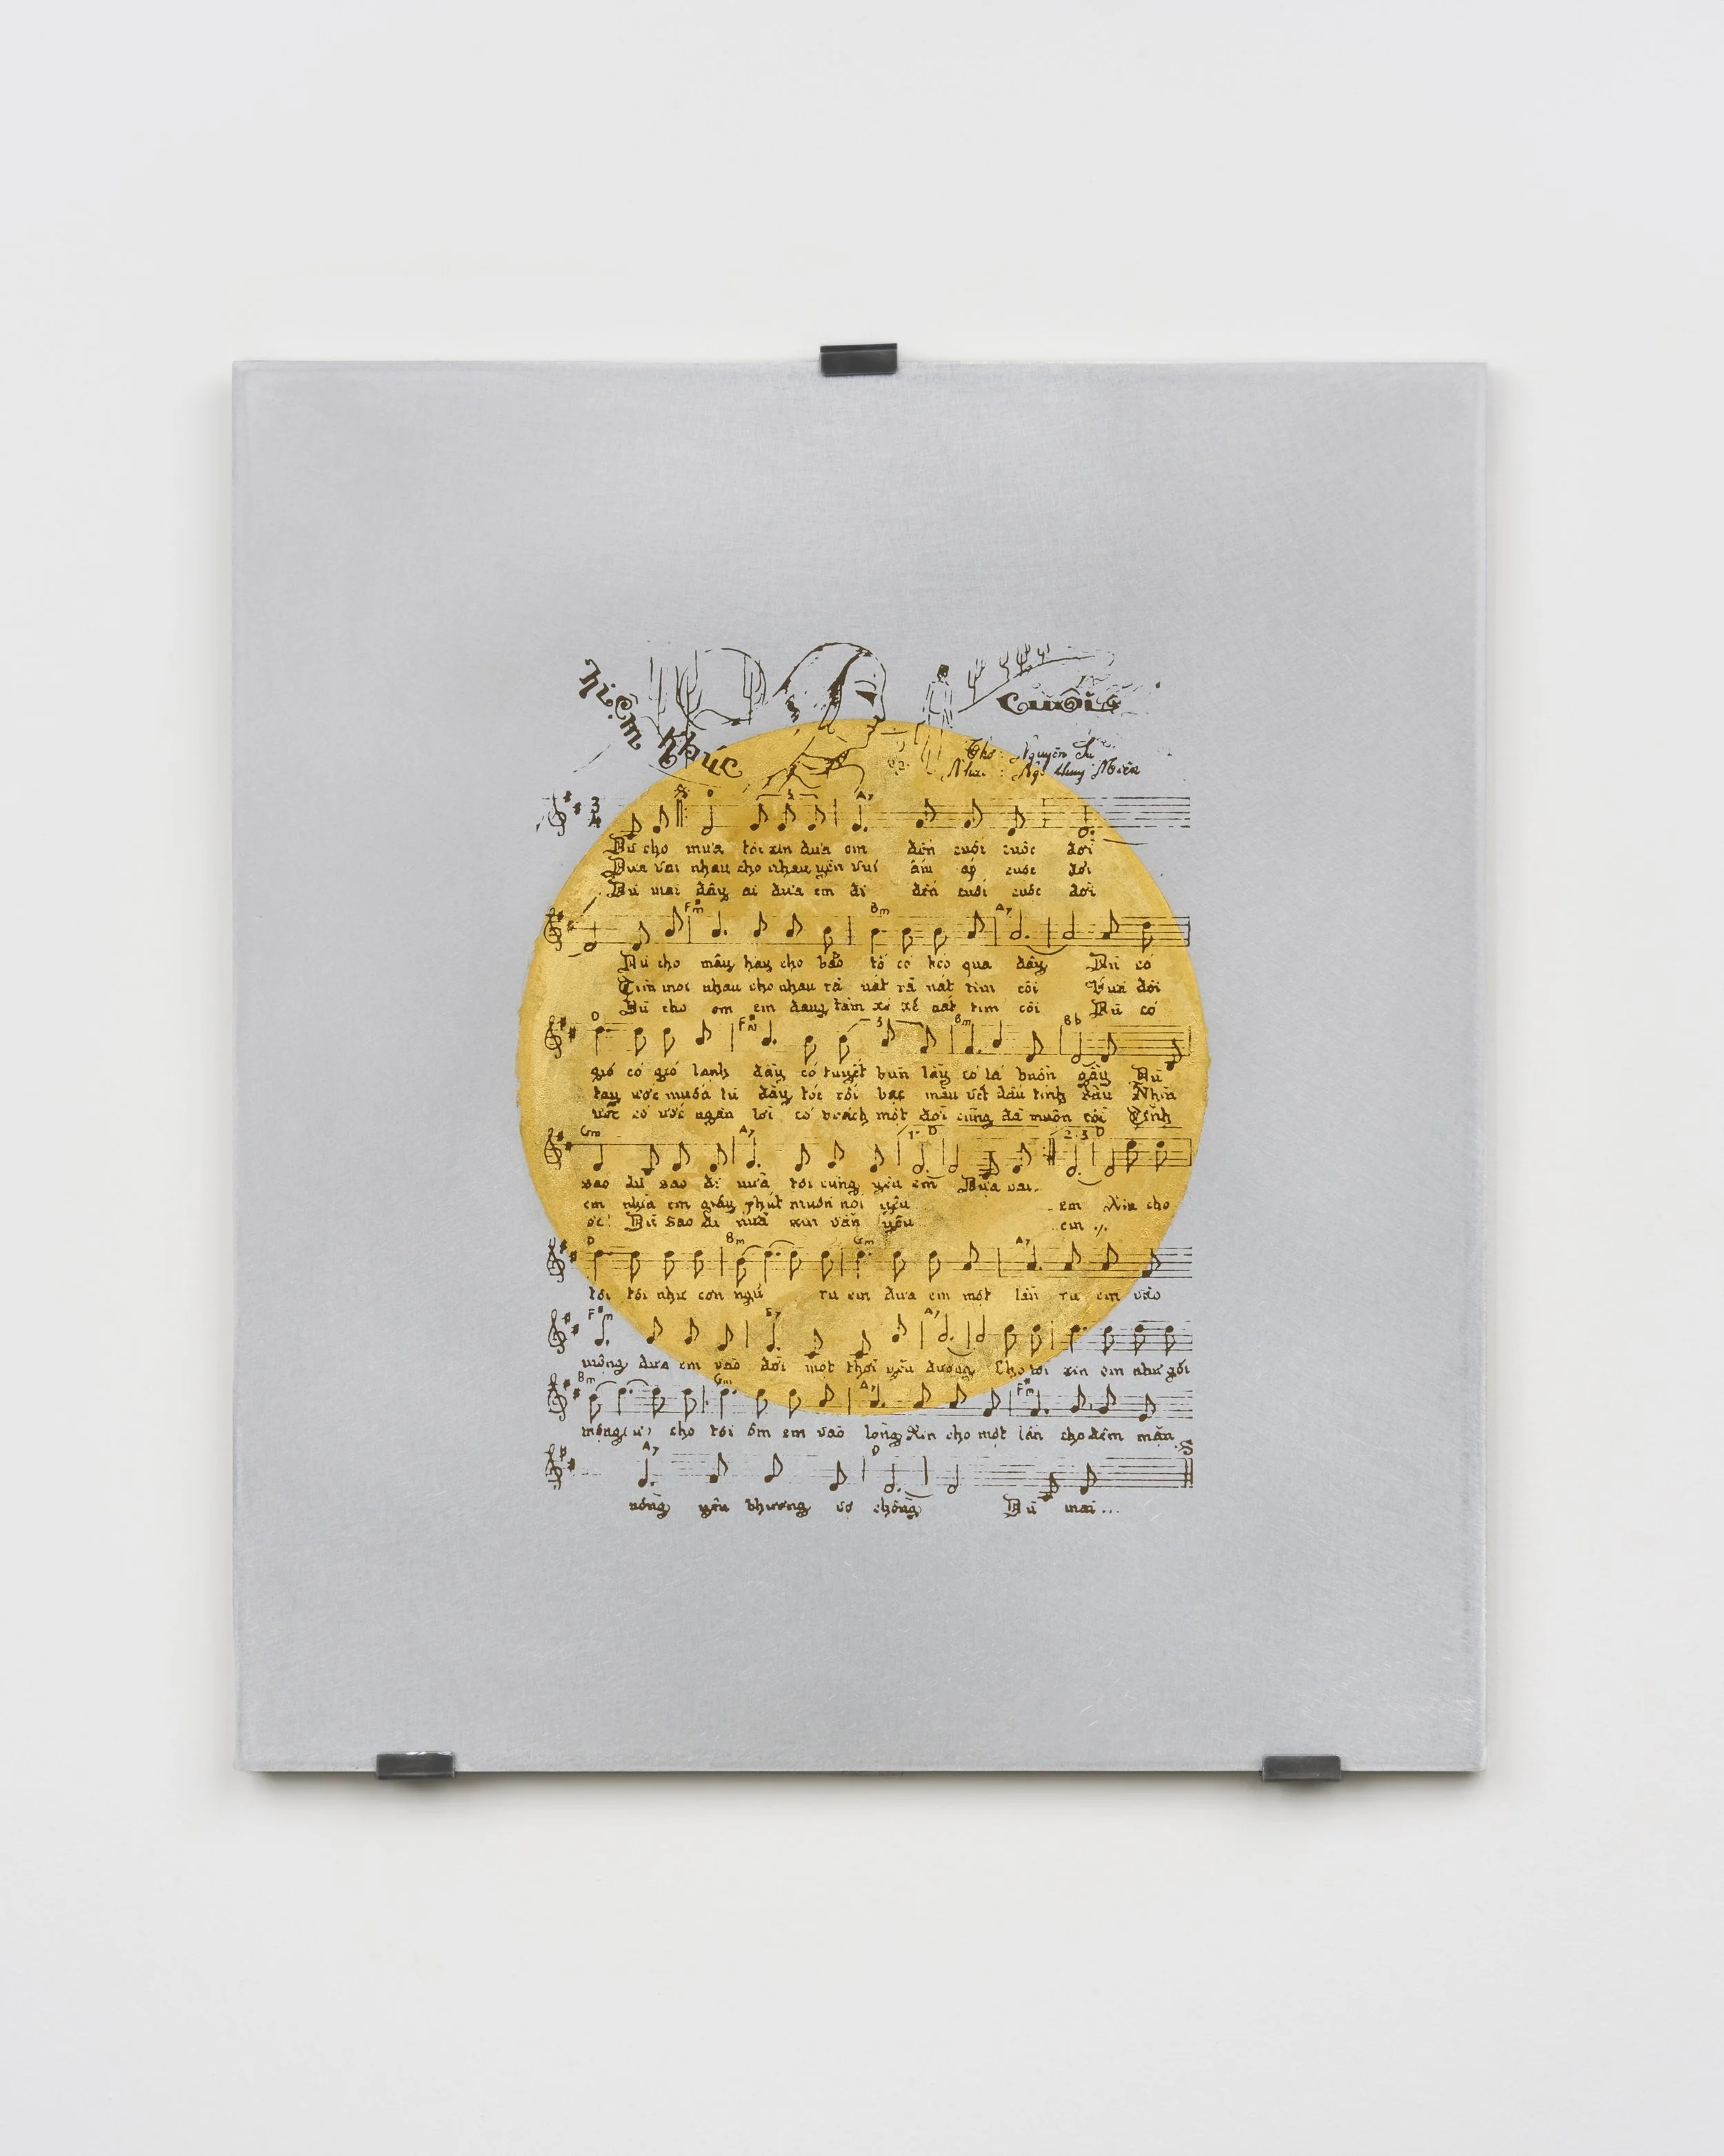 Niệm Khúc Cuối
Thơ: Nguyên Sa
Nhạc: Ngô Thụy Miên
3 4
3 A7
Dù cho mưa tôi xin đưa em đến cuối cuộc đời
Dựa vai nhau cho nhau yên vui ấm áp cuộc đời
Dù mai đây ai đưa em đi đến cuối cuộc đời
F#m Bm A7
Dù cho mây hay cho bão tố có kéo qua đây Dù có
Tìm môi nhau cho nhau rã nát rã nát tim côi Vừa đôi
Dù cho em em đang tâm xé xé nát tim côi Dù có
D F#m 3 Bm Bb
gió có gió lạnh đầy có tuyết bùn lầy có lá buồn gầy Dù
tay ước muốn tù đầy tóc rối bạc mầu vết dấu tình sầu Nhìn
ước có ước ngàn lời có trách một đời cũng đã muộn rồi Tình
Gm A7 1. D 2.3 D
sao dù sao đi nữa tôi cũng yêu em Dựa vai...
em nhìn em giây phút muốn nói yêu em Xin cho
ơi! Dù sao đi nữa xin vẫn yêu em ./.
D Bm Gm A7
tôi tôi như cơn ngủ ru em đưa em một lần ru em vào
F#m E7 A7
mộng đưa em vào đời một thời yêu đương Cho tôi xin em như gối
Bm Gm A7 F#m
mộng cho tôi ôm em vào lòng Xin cho một lần cho đêm mặn
A7 D S
nồng yêu thương vợ chồng Dù mai...